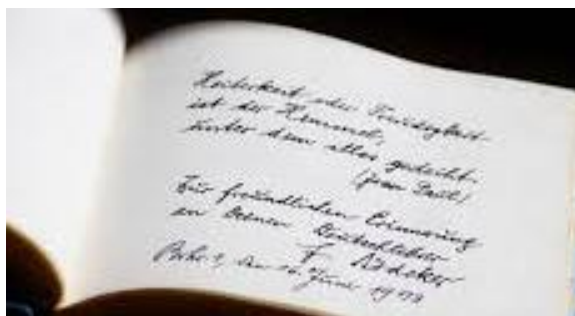 Heiterkeit oder Freudigkeit
ist der Himmel,
unter dem alles gedeiht.
(Jean Paul)
Zur freundlichen Erinnerung
an Deinen Deutschlehrer
F.
den 6. Juni